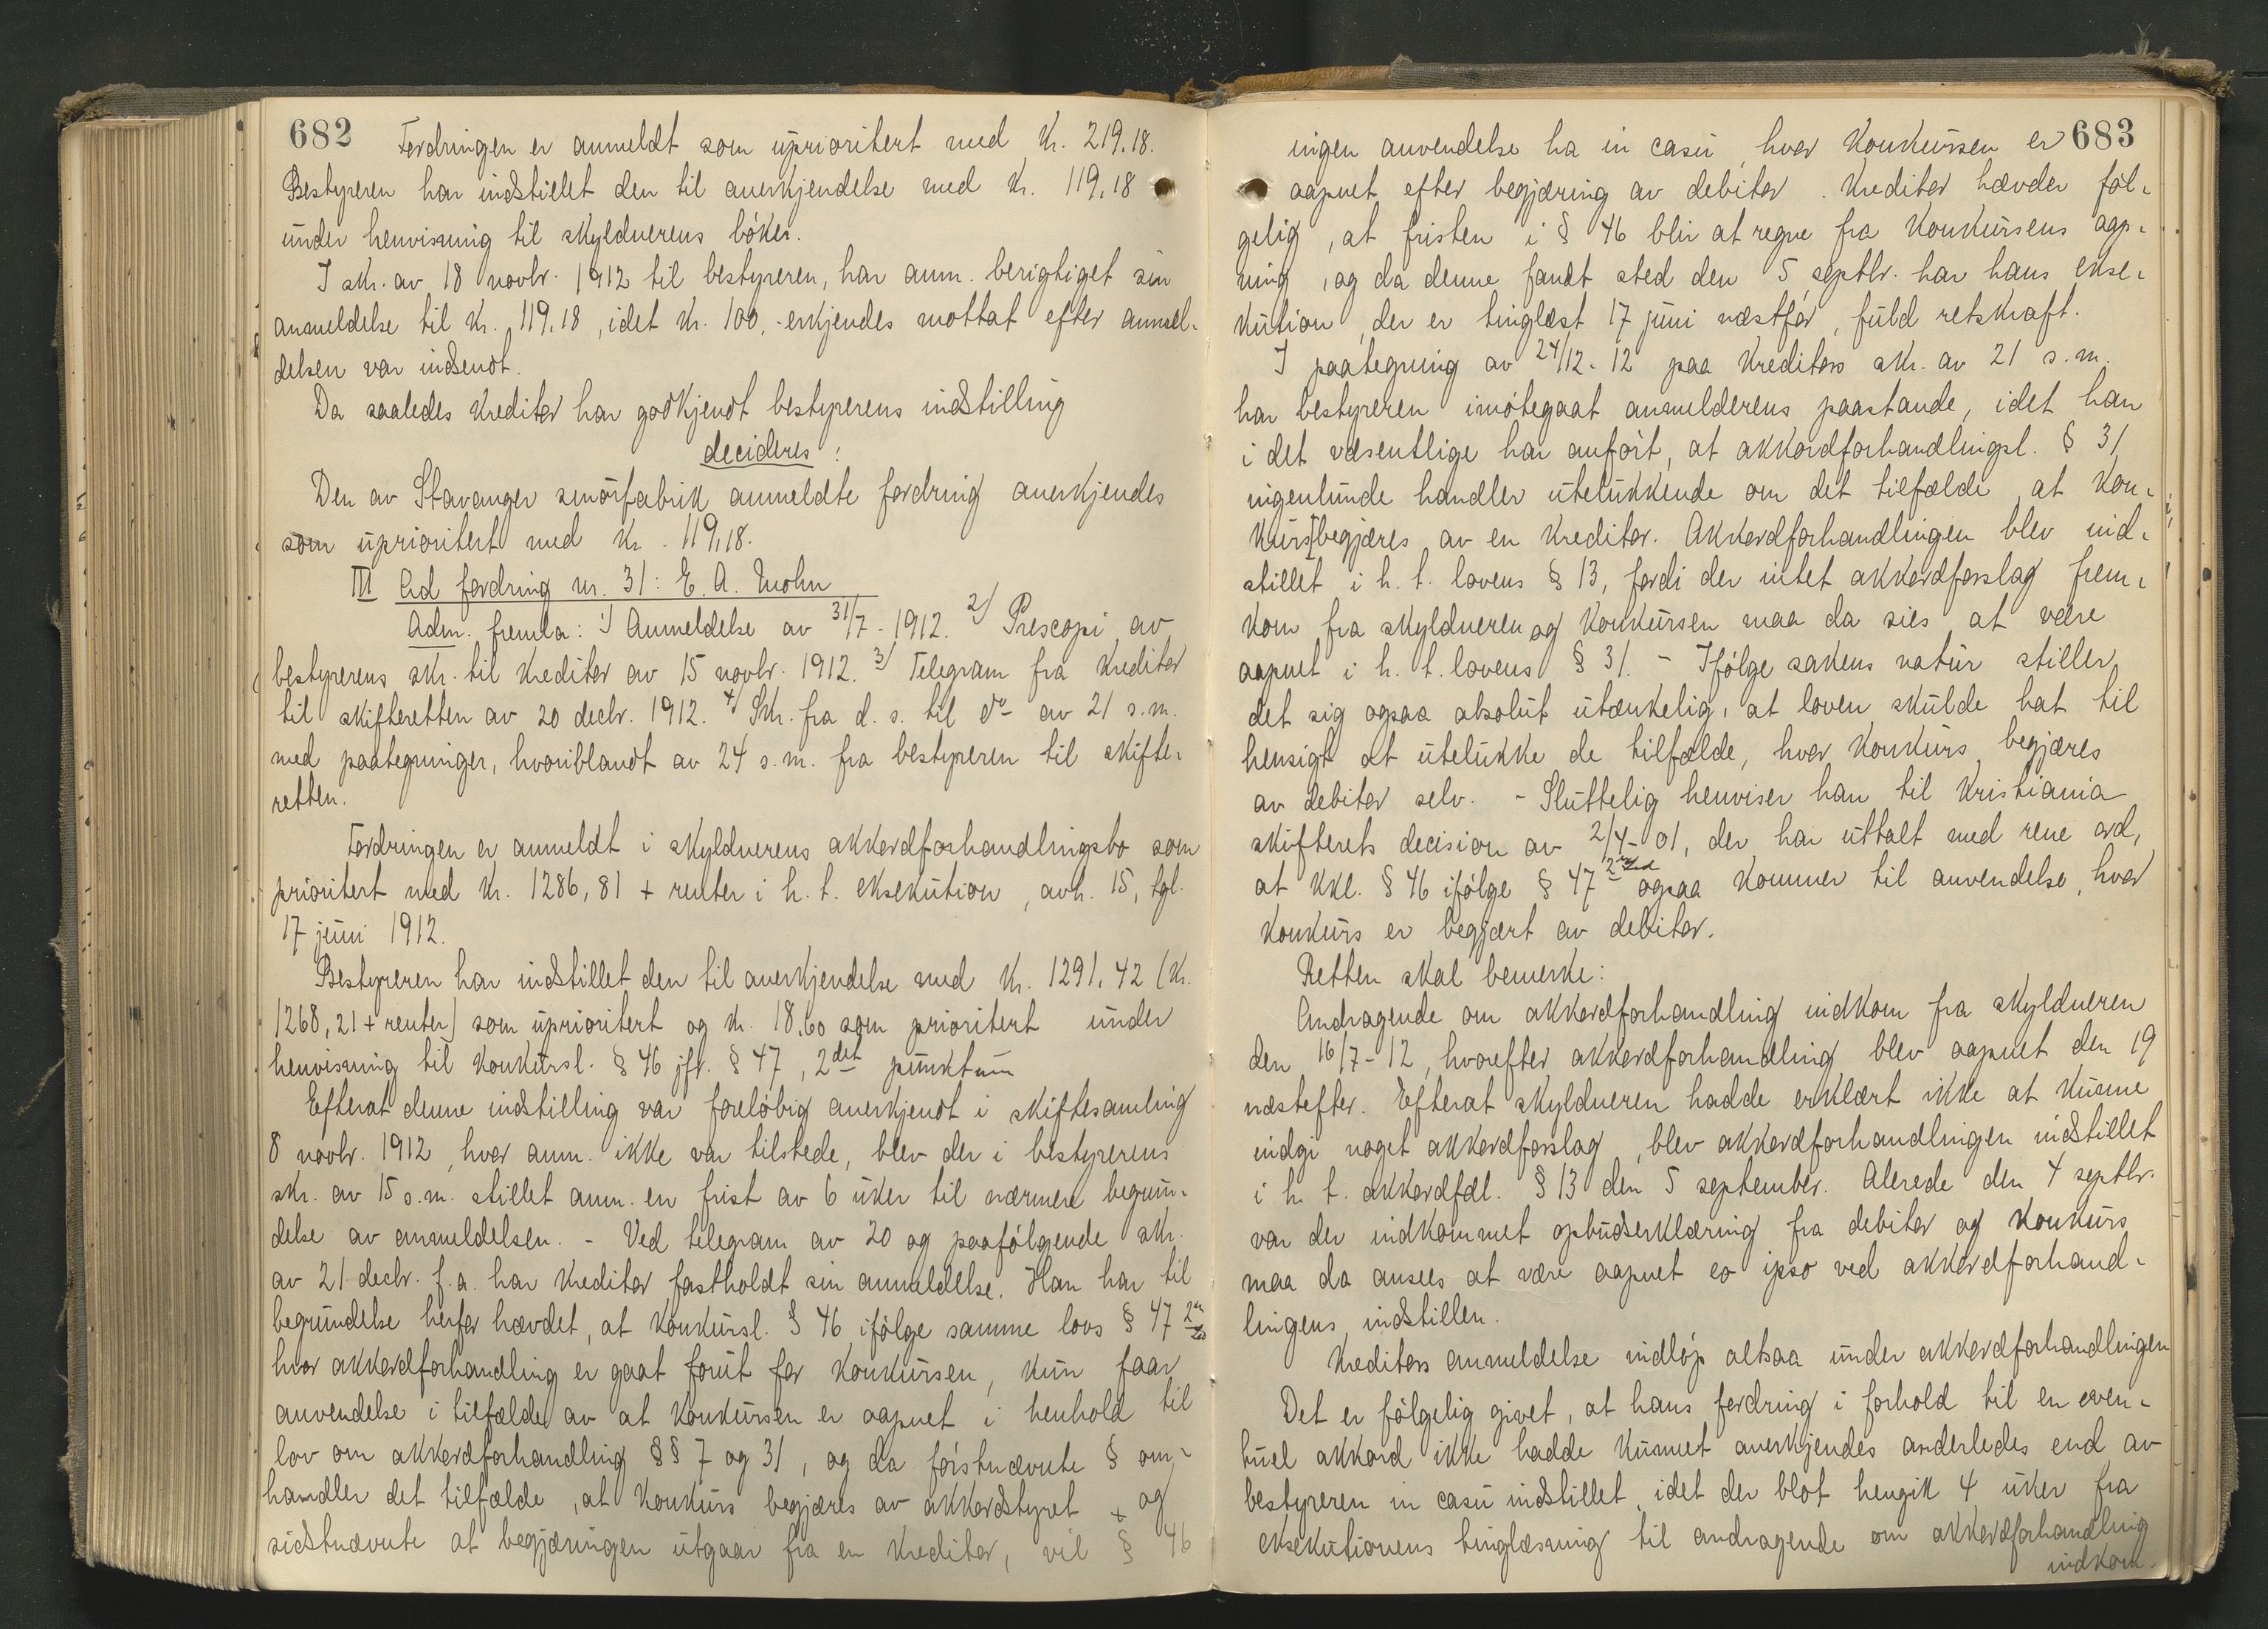 682
Fordringen er anmeldt som uprioritert med kr. 219.18.
Bestyreren har indstillet den til anerkjendelse med kr. 119,18
under henvisning til skyldnerens bøker.
I skr. av 18 novbr. 1912 til bestyreren, har anm. berigtiget sin
anmeldelse til kr. 119,18, idet kr. 100,- erkjendes mottat efter anmel-
delsen var indsendt.
Da saaledes kreditor har godkjendt bestyrerens indstilling
decideres:
Den av Stavanger smörfabrik anmeldte fordring anerkjendes
som uprioritert med kr. 119,18.
III Ad fordring nr. 31: E. A.
Adm. fremla: 1) Anmeldelse av 31/7-1912. 2) Prescopi av
bestyrerens skr. til kreditor av 15 novbr. 1912. 3) Telegram fra kreditor
til skifteretten av 20 decbr. 1912. 4) Skr. fra d. s. til do av 21 s.m.
med paategninger, hvoriblandt av 24 s.m. fra bestyreren til skifte-
retten.
Fordringen er anmeldt i skyldnerens akkordforhandlingsbo som
prioritert med kr. 1286,81 + renter i h. t. eksekution, avh. 15, tgl.
17 juni 1912.
Bestyreren har indstillet den til anerkjendelse med kr. 1291,42 (kr.
1268,21 + renter) som uprioritert og kr. 18,60 som prioritert under
henvisning til konkursl. § 46 jfr. § 47, 2det punktum
Efterat denne indstilling var foreløbig anerkjendt i skiftesamling
8 novbr. 1912, hvor anm. ikke var tilstede, blev der i bestyrerens
skr. av 15 s.m. stillet anm. en frist av 6 uker til nærmere begrun-
delse av anmeldelsen. - Ved telegram av 20 og paafølgende skr.
av 21 decbr. f.a. har kreditor fastholdt sin anmeldelse. Han har til
begrundelse herfor hævdet, at konkursl. § 46 ifølge samme lovs § 47
hvor akkordforhandling er gaat forut for konkursen, kun faar
anvendelse i tilfælde av at konkursen er aapnet i henhold til
lov om akkordforhandling §§ 7 og 31, og da førstnævnte § om-
handler det tilfælde, at konkurs begjæres av akkordstyret + og
sidstnævnte at begjæringen utgaar fra en kreditor, vil § 46
683
ingen anvendelse ha in casu, hvor konkursen er
aapnet efter begjæring av debitor. Kreditor hævder føl-
gelig, at fristen i § 46 blir at regne fra konkursens aap-
ning, og da denne fandt sted den 5 septbr. har hans ekse-
kution, der er tinglæst 17 juni næstfør, fuld retskraft.
I paategning av 24/12-12 paa kreditors skr. av 21 s.m.
har bestyreren imøtegaat anmelderens paastande, idet han
i det væsentlige har anført, at akkordforhandlingsl. § 31
ingenlunde handler utelukkende om det tilfælde at kon-
kurs begjæres av en kreditor. Akkordforhandlingen blev ind-
stillet i h. t. lovens § 13, fordi der intet akkordforslag frem-
kom fra skyldneren og konkursen maa da sies at være
aapnet i h. t. lovens § 31. - Ifølge sakens natur stiller
det sig ogsaa absolut utænkelig, at loven skulde hat til
hensigt at utelukke de tilfælde, hvor konkurs begjæres
av debitor selv. - Sluttelig henviser han til Kristiania
skifterets decision av 2/4-01, der har uttalt med rene ord,
at kkl. § 46 ifølge § 47 ogsaa kommer til anvendelse, hvor
konkurs er begjært av debitor.
Retten skal bemerke:
Andragende om akkordforhandling indkom fra skyldneren
den 16/7-12, hvorefter akkordforhandling blev aapnet den 19
næstefter. Efterat skyldneren hadde erklært ikke at kunne
indgi noget akkordforslag, blev akkordforhandlingen indstillet
i h. t. akkordfdl. § 13 den 5 september. Alerede den 4 septbr.
var der indkommet opbudserklæring fra debitor og konkurs
maa da ansees at være aapnet eo ipso ved akkordforhand-
lingens indstillen.
Kreditors anmeldelse indløp altsaa under akkordforhandlingen
Det er følgelig givet, at hans fordring i forhold til en even-
tuel akkord ikke hadde kunnet anerkjendes anderledes end av
bestyreren in casu indstillet, idet der blot hengik 4 uker fra
eksekutionens tinglæsning til andragende om akkordforhandling
indkom.